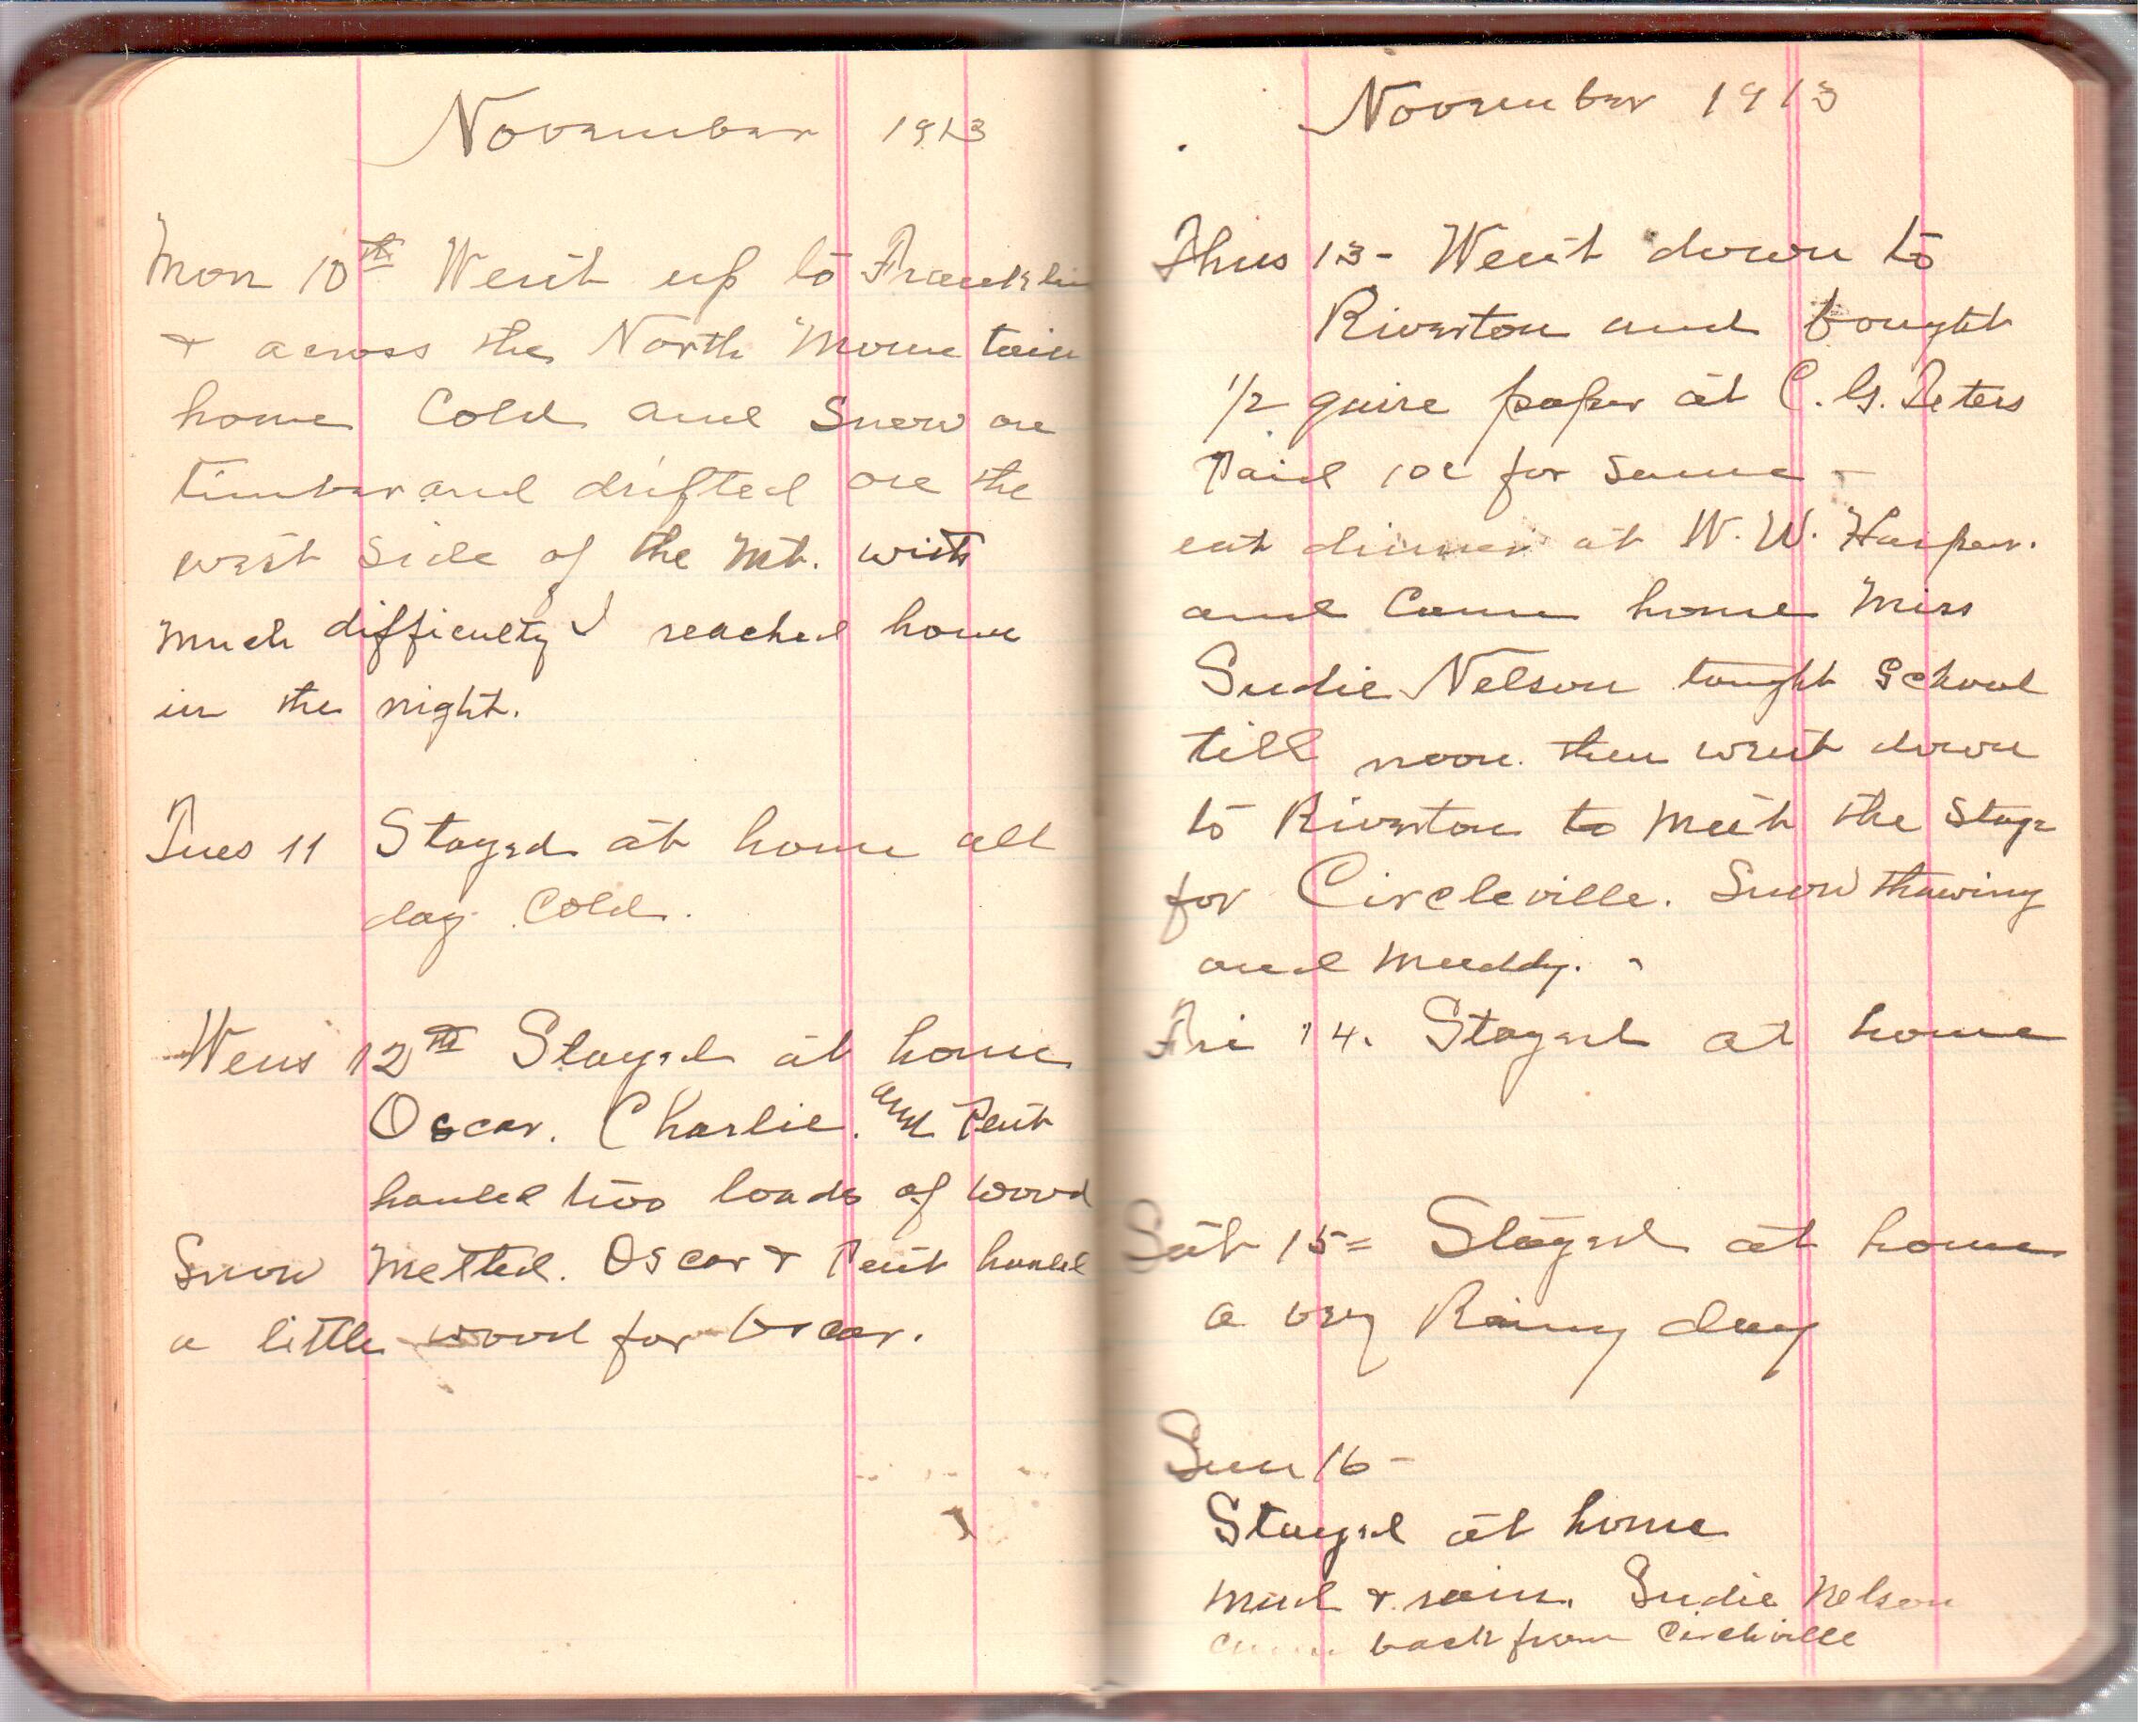 November 1913
Mon 10th Went up to Franklin
& across the North Mountain
home Cold and Snow on
timber and drifted on the
west side of the Mt. with
Much difficulty I reached home
in the night.
Tues 11 Stayed at home all
day. Cold.
Wens 12th Stayed at home
Oscar. Charlie. and Pent
hauled two loads of wood
Snow Melted. Oscar & Pent hauled
a little wood for Oscar.
November 1913
Thus 13 - Went down to
Riverton and bought
1/2 quire paper at C. G. Teters
Paid 10c for same -
eat dinner at W. W. Harper.
and Came home Miss
Sudie Nelson taught School
till noon. then went down
to Riverton to Meet the Stage
for Circleville. Snow thawing
and Muddy. -
Fri 14. Stayed at home
Sat 15 = Stayed at home
a very Rainy day
Sun 16 -
Stayed at home
Mud & rain. Sudie Nelson
came back from Circleville